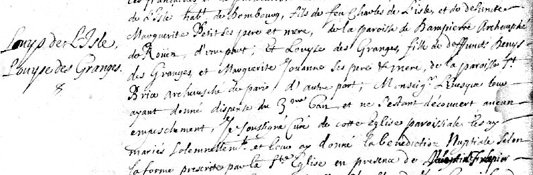 de L'Isle habt. de Bombourg, fils de feu Charles de L'Isle, et de defuncte
Louys de L'Isle,
Marguerite Petit ses pere et mere, de la paroisse de Dampierre Archevesché
de Rouen, d'une part; et Louyse des Granges, fille de deffunct Denys
Louyse des Granges.
des Granges et Marguerite Jouanne ses pere & mere, de la paroisse St
8
Brix Archevesché de paris d'autre part; Monseigr. L'Evesque leur
ayant donné dispense du 3 Ban, et ne s'estant découvert aucun
empeschement; Je soussigné Curé de cette Eglise paroissiale les ay
mariés solemnellemt. et leur ay donné la benediction Nuptiale selon
la forme prescrite par la Ste. Eglise en presence de